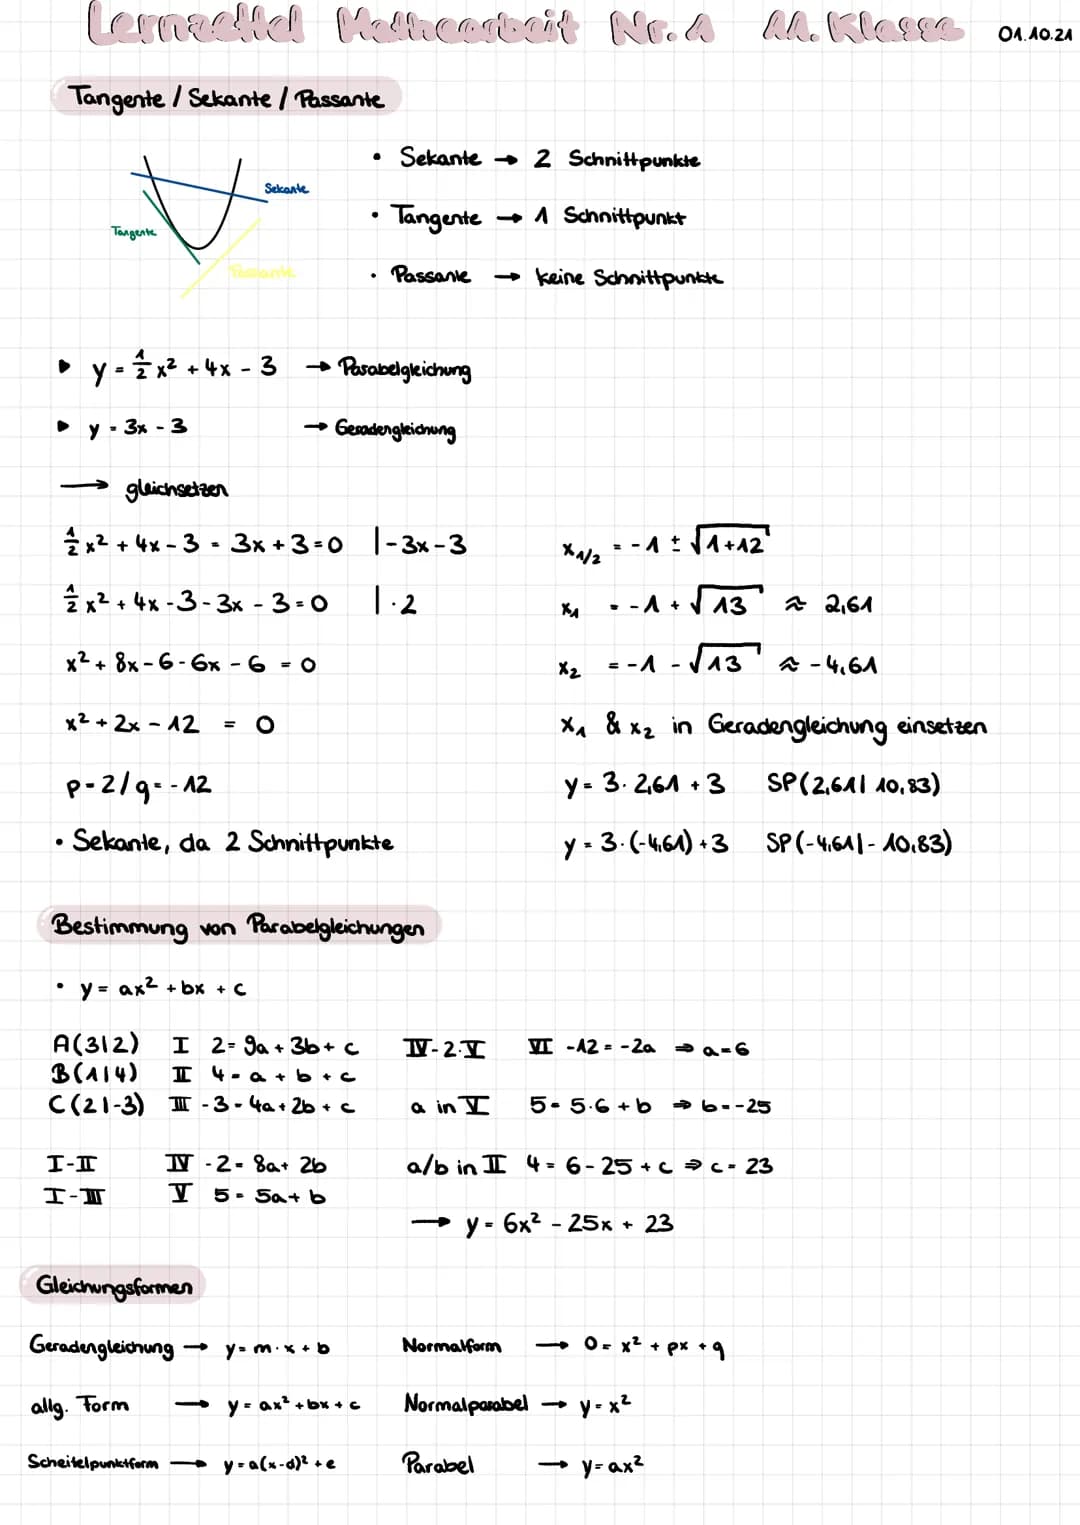 Lernzettel Mathearbeit Nr. 1 11. Klasse 01.10.21
Tangente / Sekante / Passante
Sekante
Tangente
Passante
• Sekante → 2 Schnittpunkte
• Tangente → 1 Schnittpunkt
• Passante → keine Schnittpunkte
▸ y = 1/2 x² + 4x - 3 → Parabelgleichung
▸ y = 3x - 3 → Geradengleichung
→ gleichsetzen
1/2 x² + 4x - 3 = 3x + 3 = 0 |-3x-3
1/2 x² + 4x - 3 - 3x - 3 = 0 | · 2
x² + 8x - 6 - 6x - 6 = 0
x² + 2x - 12 = 0
p = 2 / q = - 12
• Sekante, da 2 Schnittpunkte
x₁/₂ = -1 ± √1+12
x₁ = -1 + √13 ≈ 2,61
x₂ = -1 - √13 ≈ -4,61
x₁ & x₂ in Geradengleichung einsetzen
y = 3 · 2,61 + 3 SP(2,61| 10,83)
y = 3 · (-4,61) + 3 SP(-4,61|- 10,83)
Bestimmung von Parabelgleichungen
• y = ax² + bx + c
A(3|2) I 2 = 9a + 3b + c
B(1|4) II 4 = a + b + c
C(2|-3) III -3 = 4a + 2b + c
I-II IV -2 = 8a + 2b
I-III V 5 = 5a + b
IV-2·V VI -12 = -2a ⇒ a = 6
a in V 5 = 5·6 + b ⇒ b = -25
a/b in II 4 = 6 - 25 + c ⇒ c = 23
→ y = 6x² - 25x + 23
Gleichungsformen
Geradengleichung → y = m · x + b
allg. Form → y = ax² + bx + c
Scheitelpunktform → y = a(x-d)² + e
Normalform → 0 = x² + px + q
Normalparabel → y = x²
Parabel → y = ax²